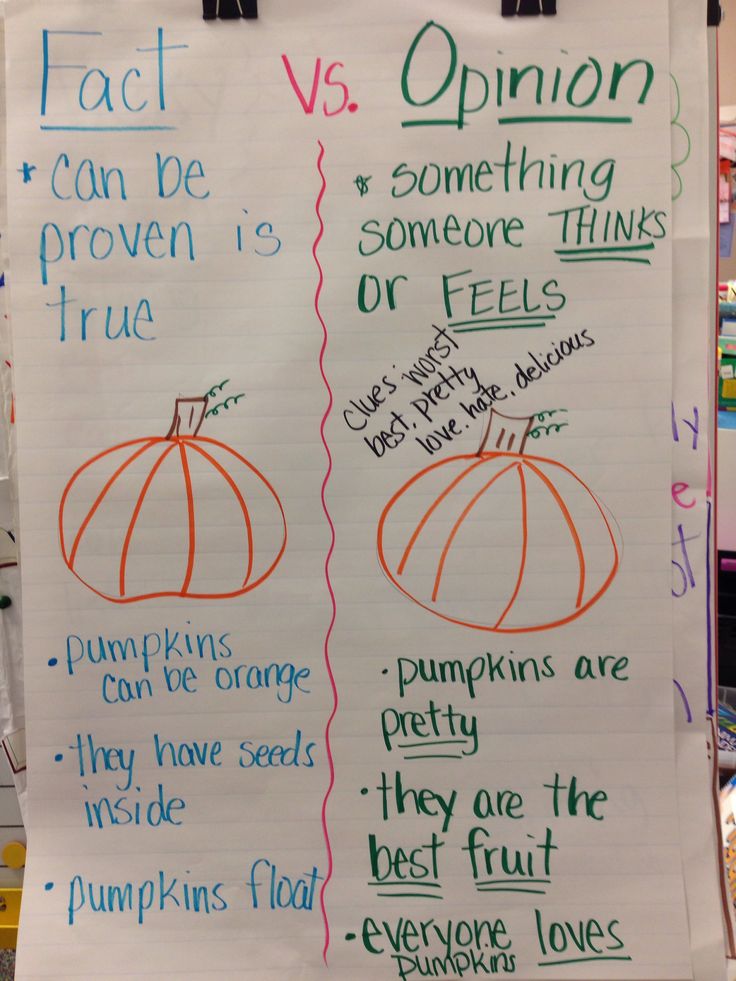 Fact vs. Opinion
* can be
proven is
true
* something
someone THINKS
or FEELS
Clues: worst
best, pretty
love, hate, delicious
• pumpkins
can be orange
• they have seeds
inside
• pumpkins float
• pumpkins are
pretty
• they are the
best fruit
• everyone loves
pumpkins
ly
e
st